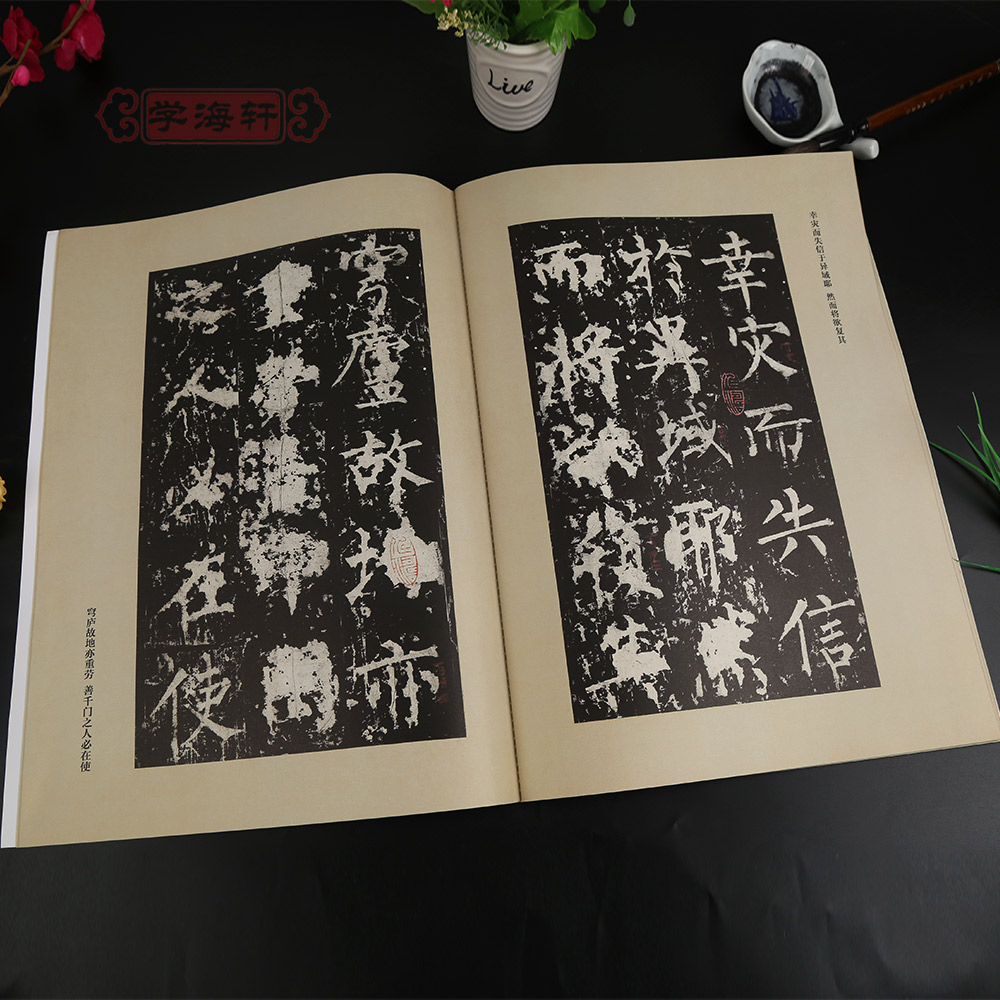 学海轩
Live
幸灾而失信
於异域耶然
而将欲复其
幸灾而失信于异域耶 然而将欲复其
穹庐故地亦
重劳善千门
之人必在使
穹庐故地亦重劳 善千门之人必在使